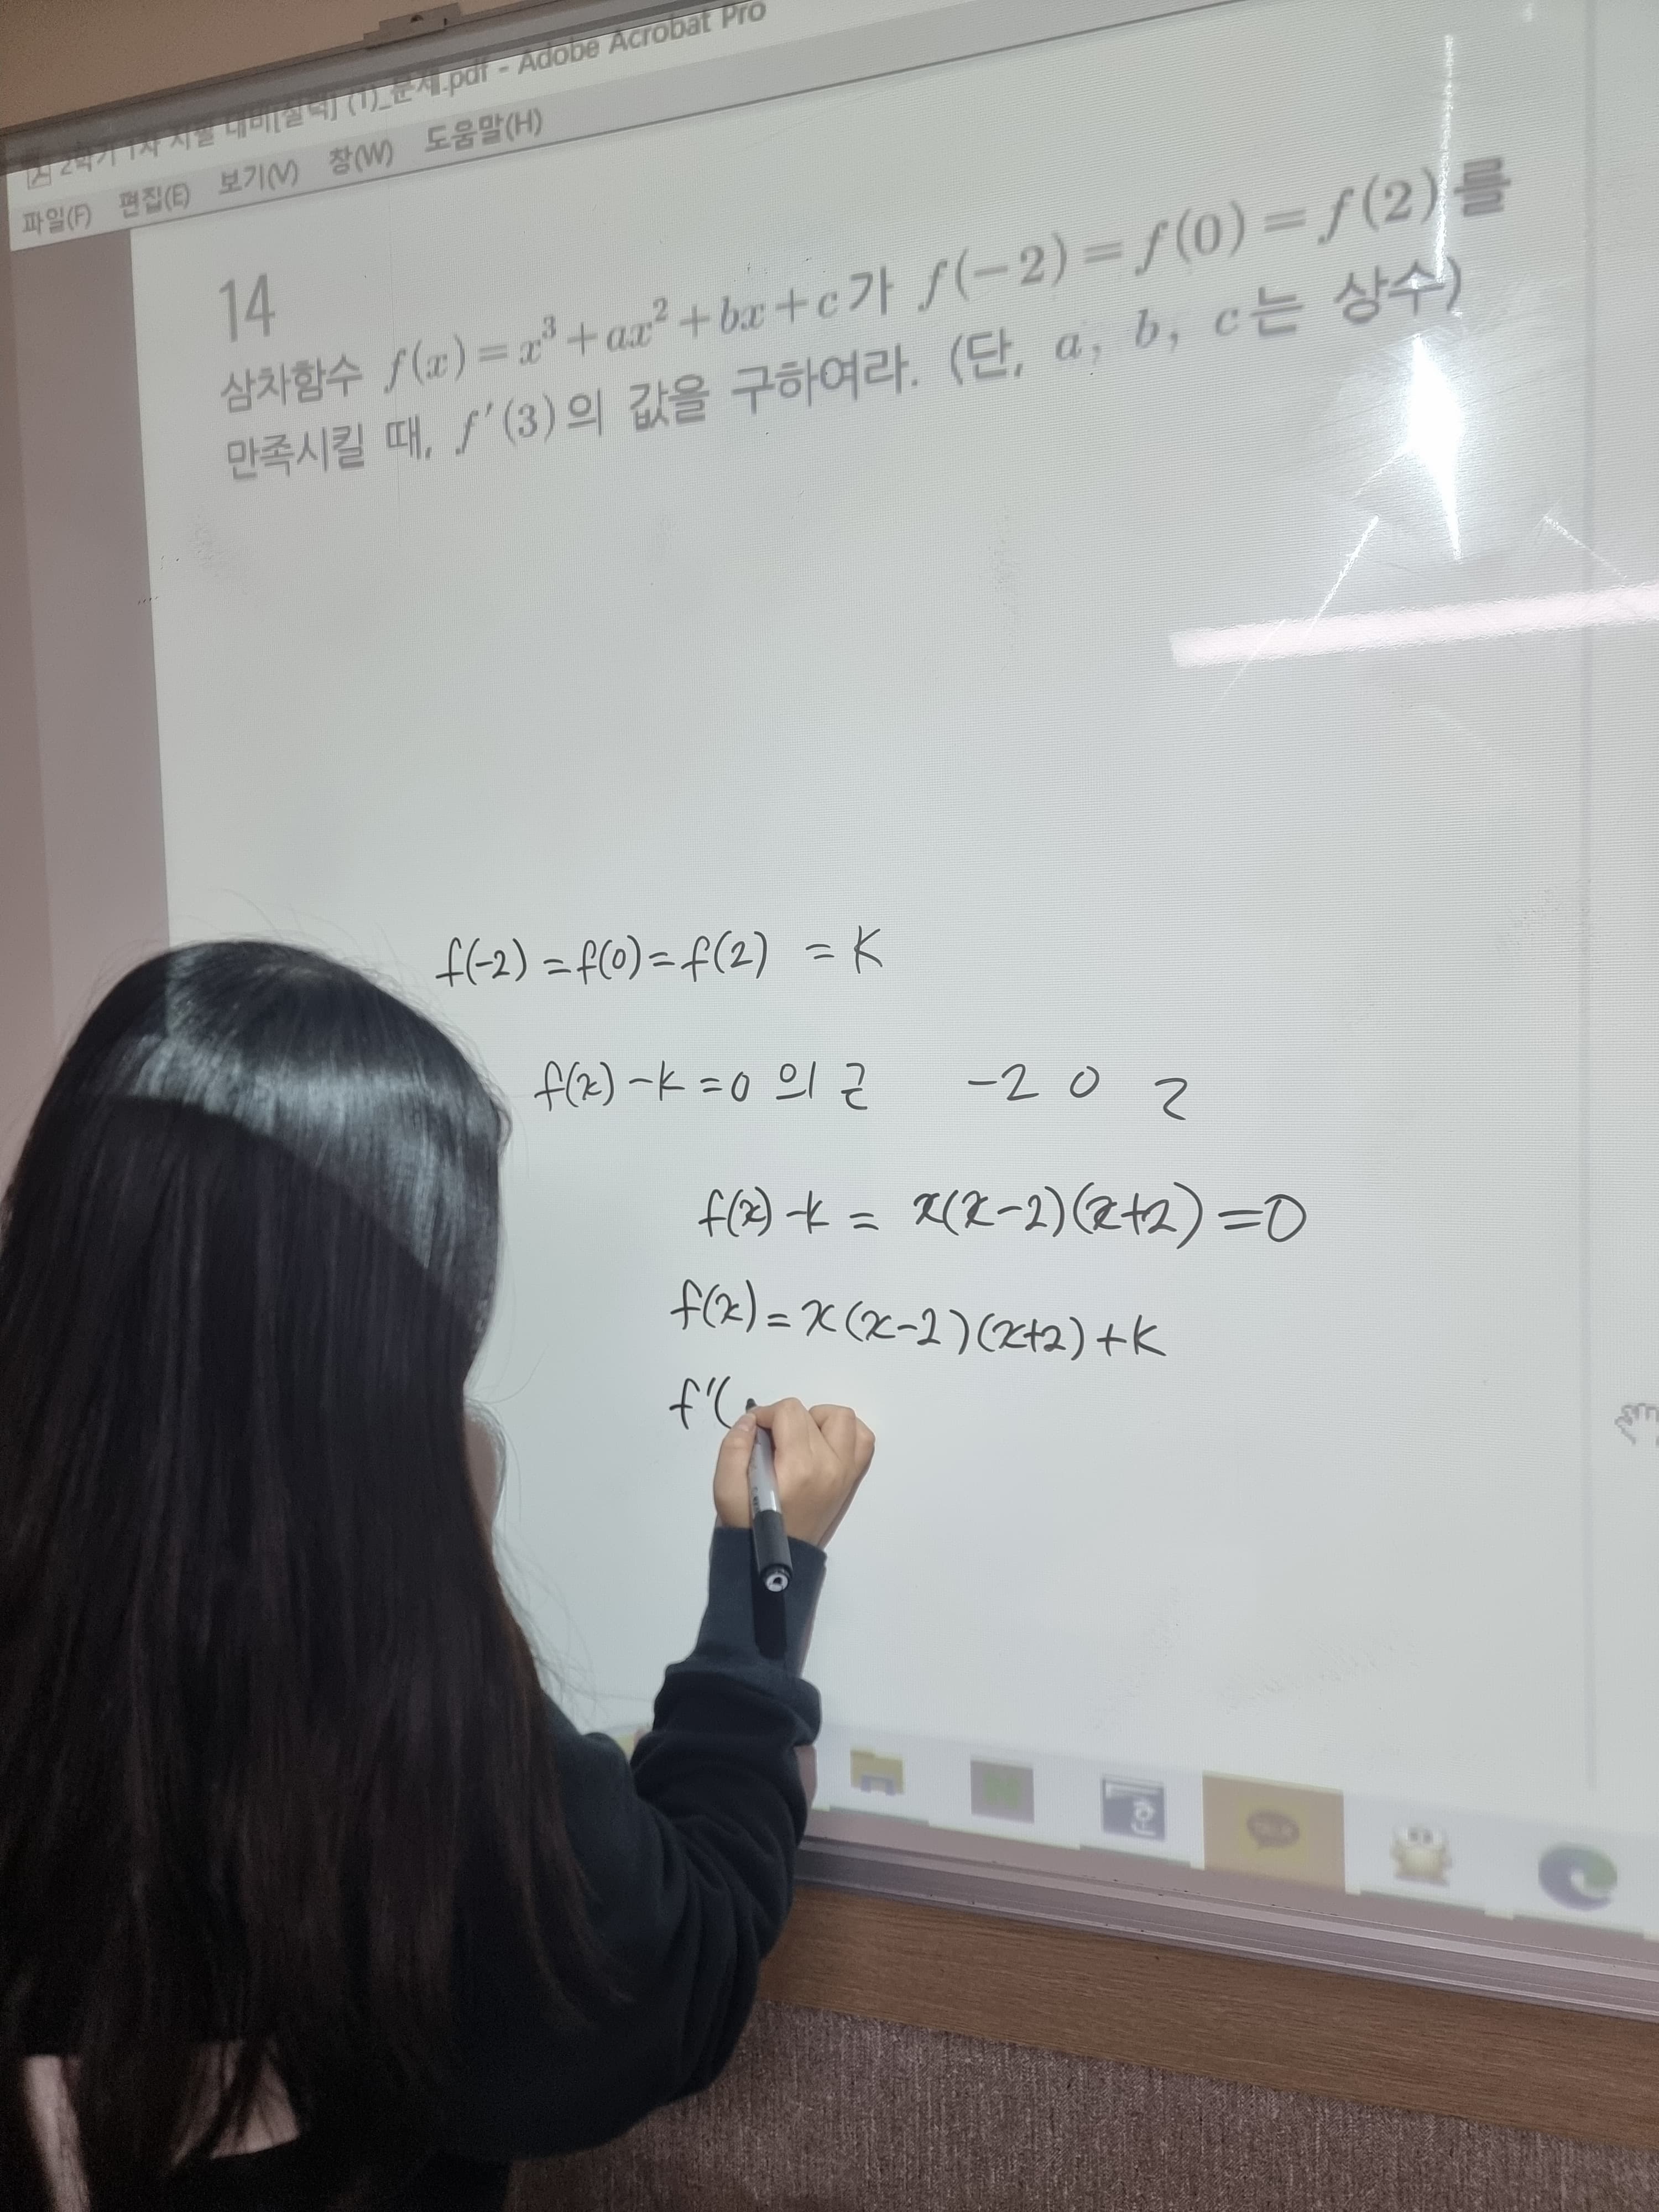 2학기 1차 지필 대비[실력] (1)_문제.pdf - Adobe Acrobat Pro
파일(F) 편집(E) 보기(V) 창(W) 도움말(H)
14
삼차함수 f(x)=x³+ax²+bx+c가 f(−2)=f(0)=f(2)를
만족시킬 때, f′(3)의 값을 구하여라. (단, a, b, c는 상수)
f(-2) = f(0) = f(2) = K
f(x) - k = 0 의 근 -2 0 2
f(x) - k = x(x-2)(x+2) = 0
f(x) = x(x-2)(x+2) + k
f'(